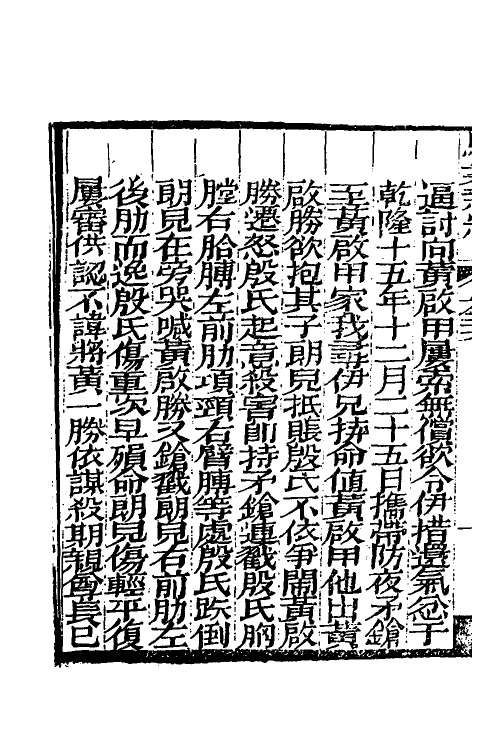 逼討向黃啟甲屢索無償欲令伊措還氣忿于
乾隆十五年十二月二十五日攜帶防夜矛鎗
至黃啟甲家找尋伊兄拚命值黃啟甲他出黃
啟勝欲抱其子朗兒抵賬殷氏不依爭鬧黃啟
勝遷怒殷氏起意殺害卽持矛鎗連戳殷氏胸
膛右胳膊左前肋項頸右臂膊等處殷氏跌倒
朗兒在旁哭喊黃啟勝又鎗戳朗兒右前肋左
後肋而逸殷氏傷重次早殞命朗兒傷輕平復
屢審供認不諱將黃一勝依謀殺期親尊長已